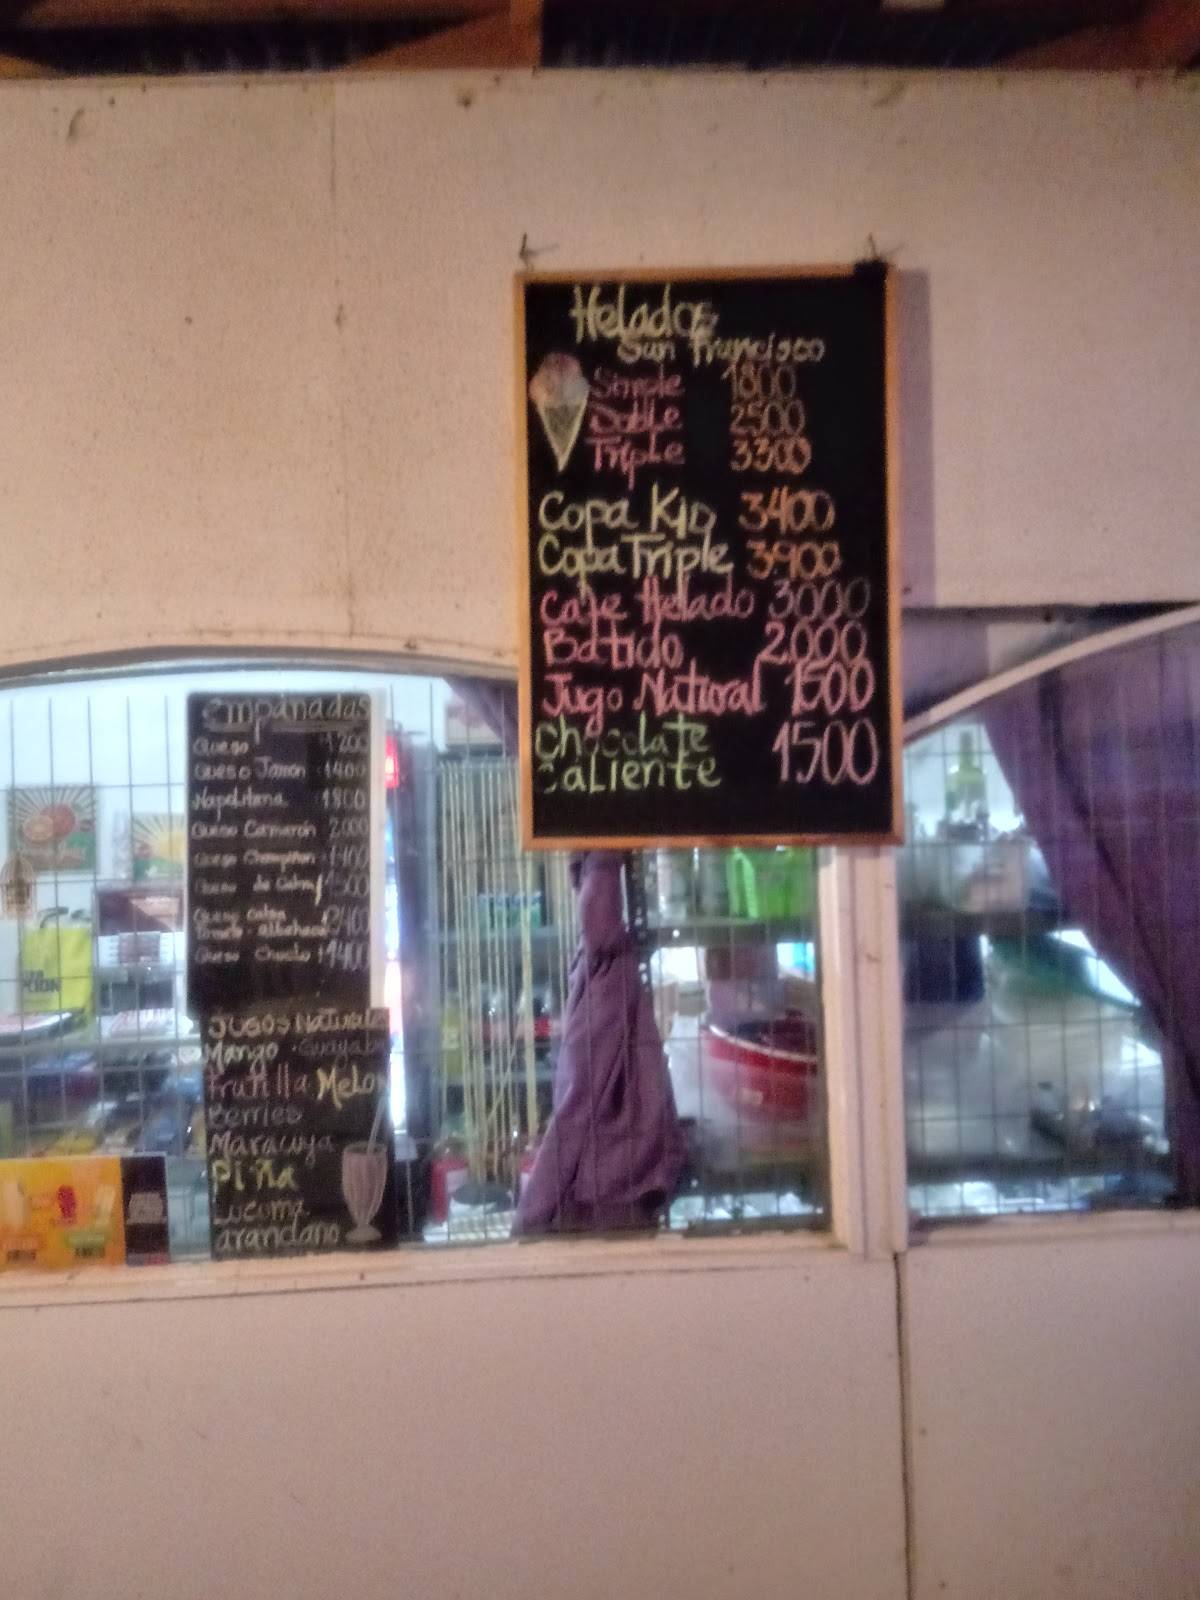 Helados
San Francisco
Simple 1800
Doble 2500
Triple 3300
Copa Kid 3400
Copa Triple 3900
Cafe Helado 3000
Batido 2.000
Jugo Natural 1500
Chocolate
Caliente 1500
Empanadas
Queso 1200
Queso Jamón 1400
Napolitana 1800
Queso Camarón 2000
Queso Champiñon 1400
Queso
Queso
Tomate albahaca
Queso Choclo 1400
Jugos Natural
Mango Guayaba
Frutilla Melo
Berries
Maracuya
Piña
Lucuma
arandano